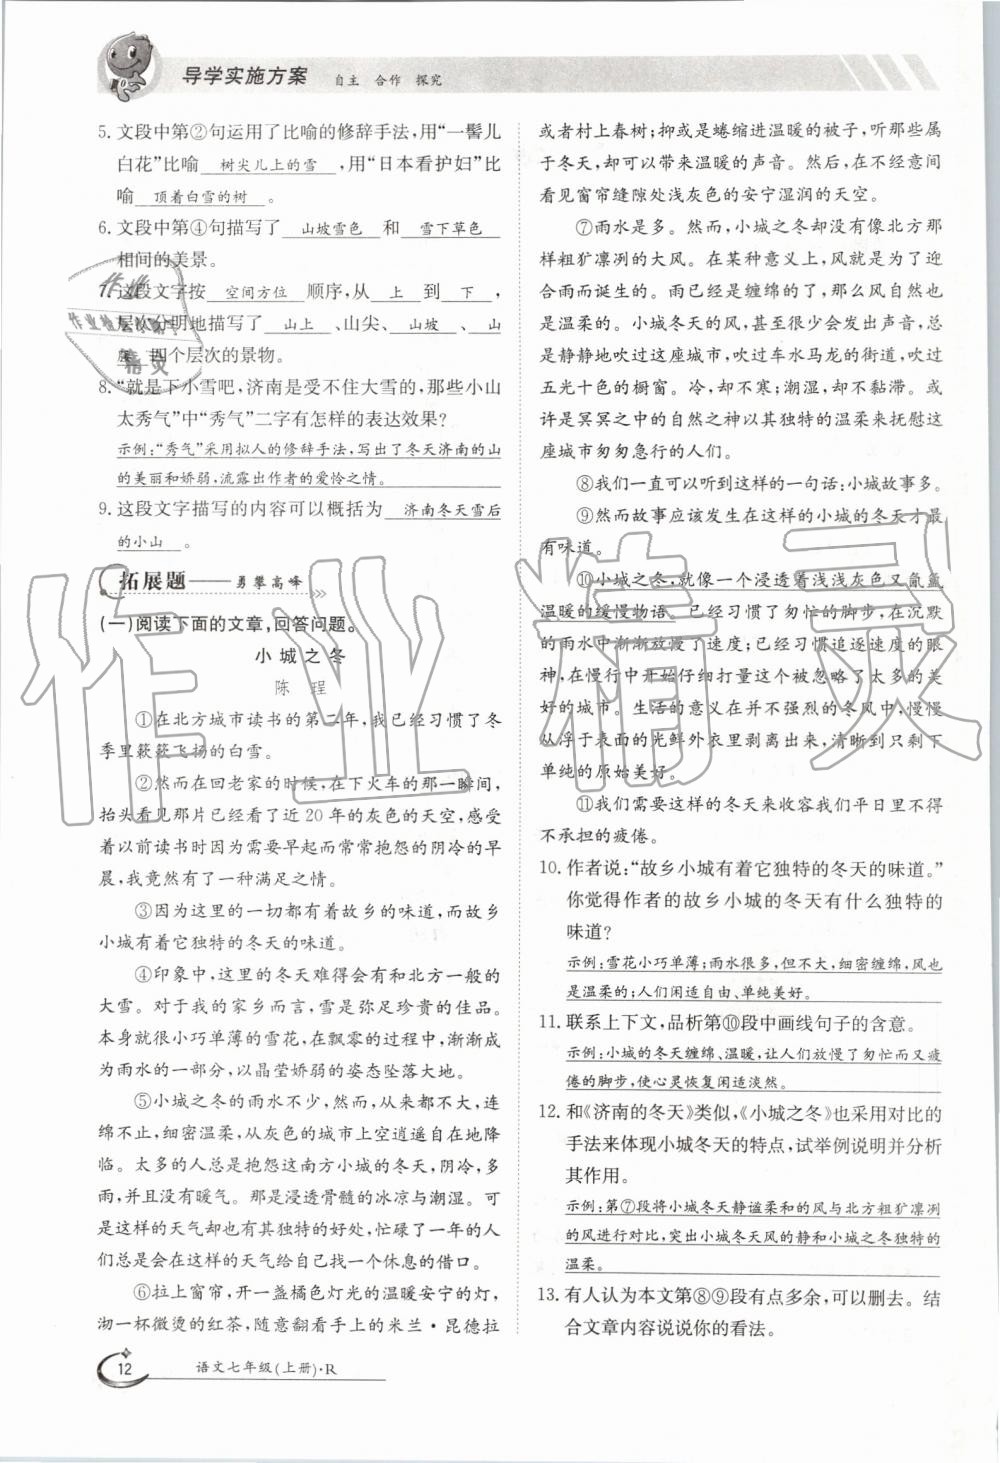 导学实施方案 自主 合作 探究
5. 文段中第②句运用了比喻的修辞手法,用“一髻儿
白花”比喻 树尖儿上的雪 ,用“日本看护妇”比
喻 顶着白雪的树 。
6. 文段中第④句描写了 山坡雪色 和 雪下草色
相间的美景。
7. 这段文字按 空间方位 顺序,从 上 到 下 ,
层次分明地描写了 山上 、山尖、 山坡 、 山
麓 四个层次的景物。
8. “就是下小雪吧,济南是受不住大雪的,那些小山
太秀气”中“秀气”二字有怎样的表达效果?
示例:“秀气”采用拟人的修辞手法,写出了冬天济南的山
的美丽和娇弱,流露出作者的爱怜之情。
9. 这段文字描写的内容可以概括为 济南冬天雪后
的小山 。
拓展题——勇攀高峰
(一)阅读下面的文章,回答问题。
小城之冬
陈 珵
①在北方城市读书的第二年,我已经习惯了冬
季里簌簌飞扬的白雪。
②然而在回老家的时候,在下火车的那一瞬间,
抬头看见那片已经看了近20年的灰色的天空,感受
着以前读书时因为需要早起而常常抱怨的阴冷的早
晨,我竟然有了一种满足之情。
③因为这里的一切都有着故乡的味道,而故乡
小城有着它独特的冬天的味道。
④印象中,这里的冬天难得会有和北方一般的
大雪。对于我的家乡而言,雪是弥足珍贵的佳品。
本身就很小巧单薄的雪花,在飘零的过程中,渐渐成
为雨水的一部分,以晶莹娇弱的姿态坠落大地。
⑤小城之冬的雨水不少,然而,从来都不大,连
绵不止,细密温柔,从灰色的城市上空逍遥自在地降
临。太多的人总是抱怨这南方小城的冬天,阴冷,多
雨,并且没有暖气。那是浸透骨髓的冰凉与潮湿。可
是这样的天气却也有其独特的好处,忙碌了一年的人
们总是会在这样的天气给自己找一个休息的借口。
⑥拉上窗帘,开一盏橘色灯光的温暖安宁的灯,
沏一杯微烫的红茶,随意翻看手上的米兰·昆德拉
12 语文七年级(上册)·R
或者村上春树;抑或是蜷缩进温暖的被子,听那些属
于冬天,却可以带来温暖的声音。然后,在不经意间
看见窗帘缝隙处浅灰色的安宁湿润的天空。
⑦雨水是多了。然而,小城却没有像北方那
样粗犷凛冽的大风。在某种意义上,风更像是为迎
合雨而诞生的。雨已经是缠绵的了,那么风自然也
是温柔的。小城冬天的风,甚至很少会发出声音,总
是静静地吹过这座城市,吹过车水马龙的街道,吹过
五光十色的橱窗。冷,却不寒;潮湿,却不黏滞。或
许是冥冥之中的自然之神以其独特的温柔来抚慰这
座城市匆匆急行的人们。
⑧我们一直可以听到这样的一句话:小城故事多。
⑨然而故事应该发生在这样的小城的冬天才最
有味道。
⑩小城之冬,就像一个浸透着浅浅灰色又氤氲
温暖的缓慢物语。已经习惯了匆忙的脚步,在沉默
的雨水中渐渐放慢了速度;已经习惯追逐速度的眼
神,在慢行中开始仔细打量这个被忽略了太多的美
好的城市。生活的意义在并不强烈的冬风中,慢慢
从浮于表面的光鲜外衣里剥离出来,清晰到只剩下
单纯的原始美好。
⑪我们需要这样的冬天来收容我们平日里不得
不承担的疲倦。
10. 作者说:“故乡小城有着它独特的冬天的味道。”
你觉得作者的故乡小城的冬天有什么独特的
味道?
示例:雪花小巧单薄;雨水很多,但不大,细密缠绵,风也
是温柔的;人们闲适自由、单纯美好。
11. 联系上下文,品析第⑩段中画线句子的含意。
示例:小城的冬天缠绵、温暖,让人们放慢了匆忙而又疲
倦的脚步,使心灵恢复闲适淡然。
12. 和《济南的冬天》类似,《小城之冬》也采用对比的
手法来体现小城冬天的特点,试举例说明并分析
其作用。
示例:第⑦段将小城冬天静谧柔和的风与北方粗犷凛冽
的风进行对比,突出小城冬天风的静和小城之冬独特的
温柔。
13. 有人认为本文第⑧⑨段有点多余,可以删去。结
合文章内容说说你的看法。
作业
作业检查小助手
精灵
作业精灵